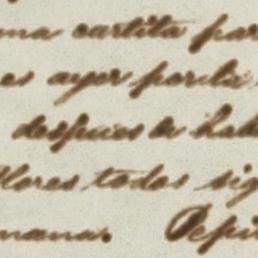 ma cartita par
es ayer por la
despues de hab
flores todos sig
mana. Pepi